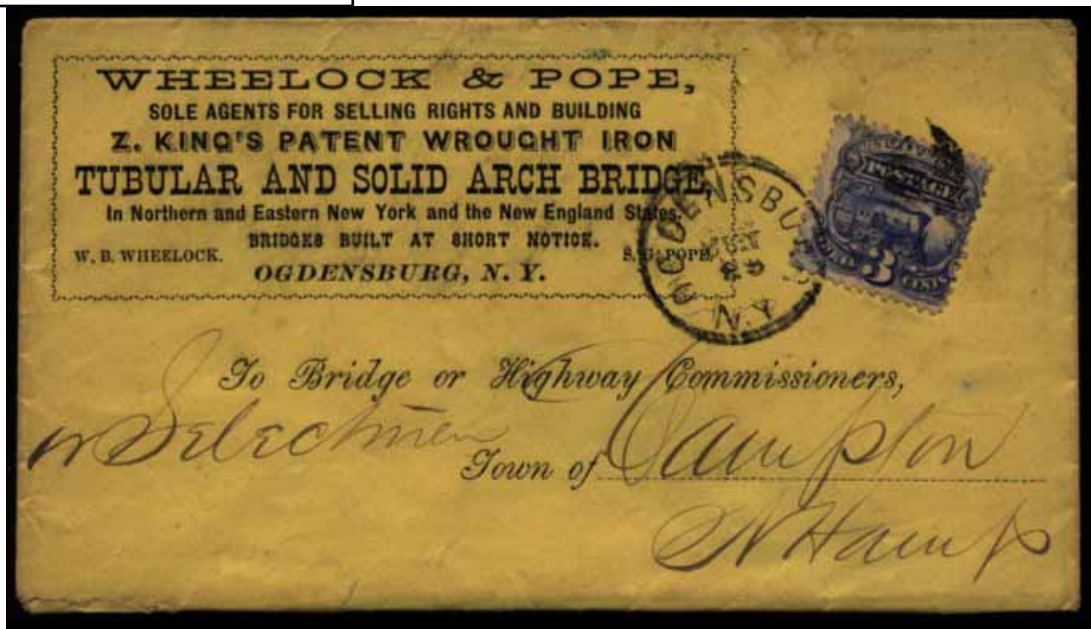 WHEELOCK & POPE,
SOLE AGENTS FOR SELLING RIGHTS AND BUILDING
Z. KING'S PATENT WROUGHT IRON
TUBULAR AND SOLID ARCH BRIDGE,
In Northern and Eastern New York and the New England States.
BRIDGES BUILT AT SHORT NOTICE.
W. B. WHEELOCK. S. G. POPE.
OGDENSBURG, N. Y.
OGDENSBURG
N.Y.
POSTAGE
3
CENTS
To Bridge or Highway Commissioners,
or Selectmen
Town of Campton
N Hamp